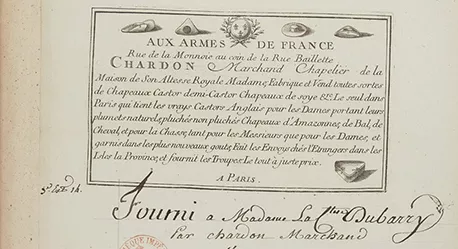 AUX ARMES DE FRANCE
Rue de la Monnoie au coin de la Rue Baillette
CHARDON Marchand Chapelier de la
Maison de Son Altesse Royale Madame, Fabrique et Vend toutes sortes
de Chapeaux Castor demi-Castor Chapeaux de soye &c. Le seul dans
Paris qui tient les vrays Castors Anglais pour les Dames portant leurs
plumets naturels, pluchés non pluchés Chapeaux d'Amazonnes, de Bal, de
Cheval, et pour la Chasse, tant pour les Messieurs que pour les Dames, et
garnis dans les plus nouveaux gouts, Fait les Envoys chés l'Etrangers dans les
Isles la Province, et fournit les Troupes. Le tout à juste prix.
A PARIS.
Fourni a Madame La Ctesse Dubarry
par chardon Marchand